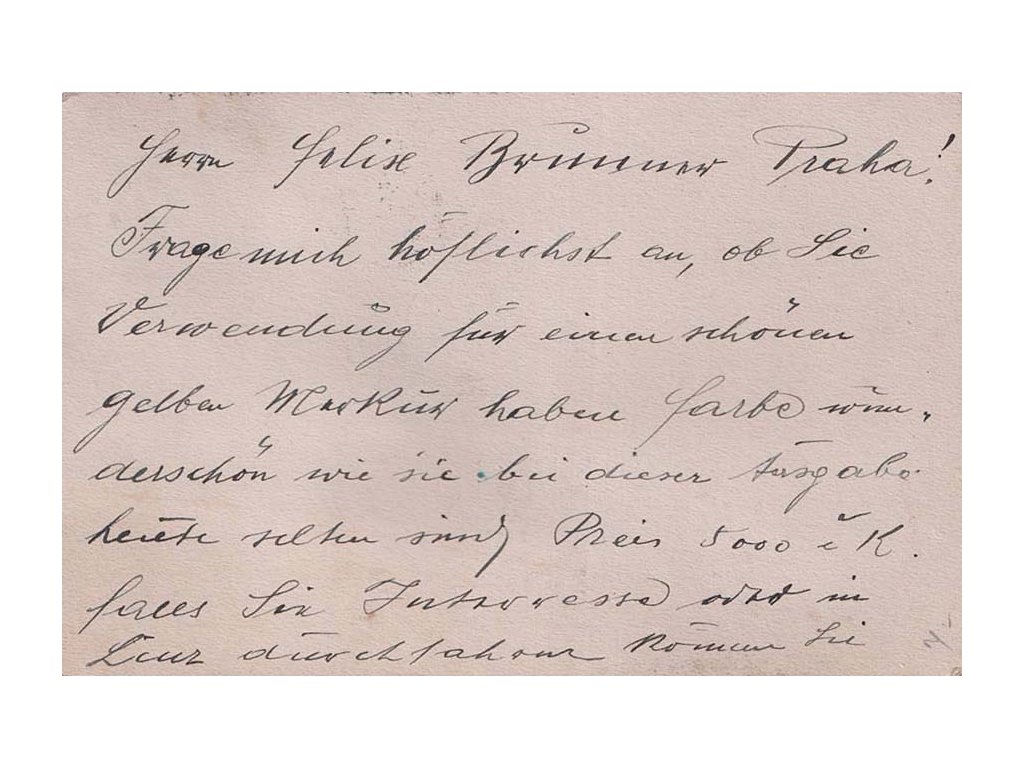 Herrn Felix Brunner Praha!
Frage mich höflichst an, ob Sie
Verwendung für einen schönen
gelben Merkur haben Farbe wun-
derschön wie sie bei dieser Ausgabe
heute selten sind Preis 5000 č K.
falls Sie oder in
Linz durchfahren können Sie